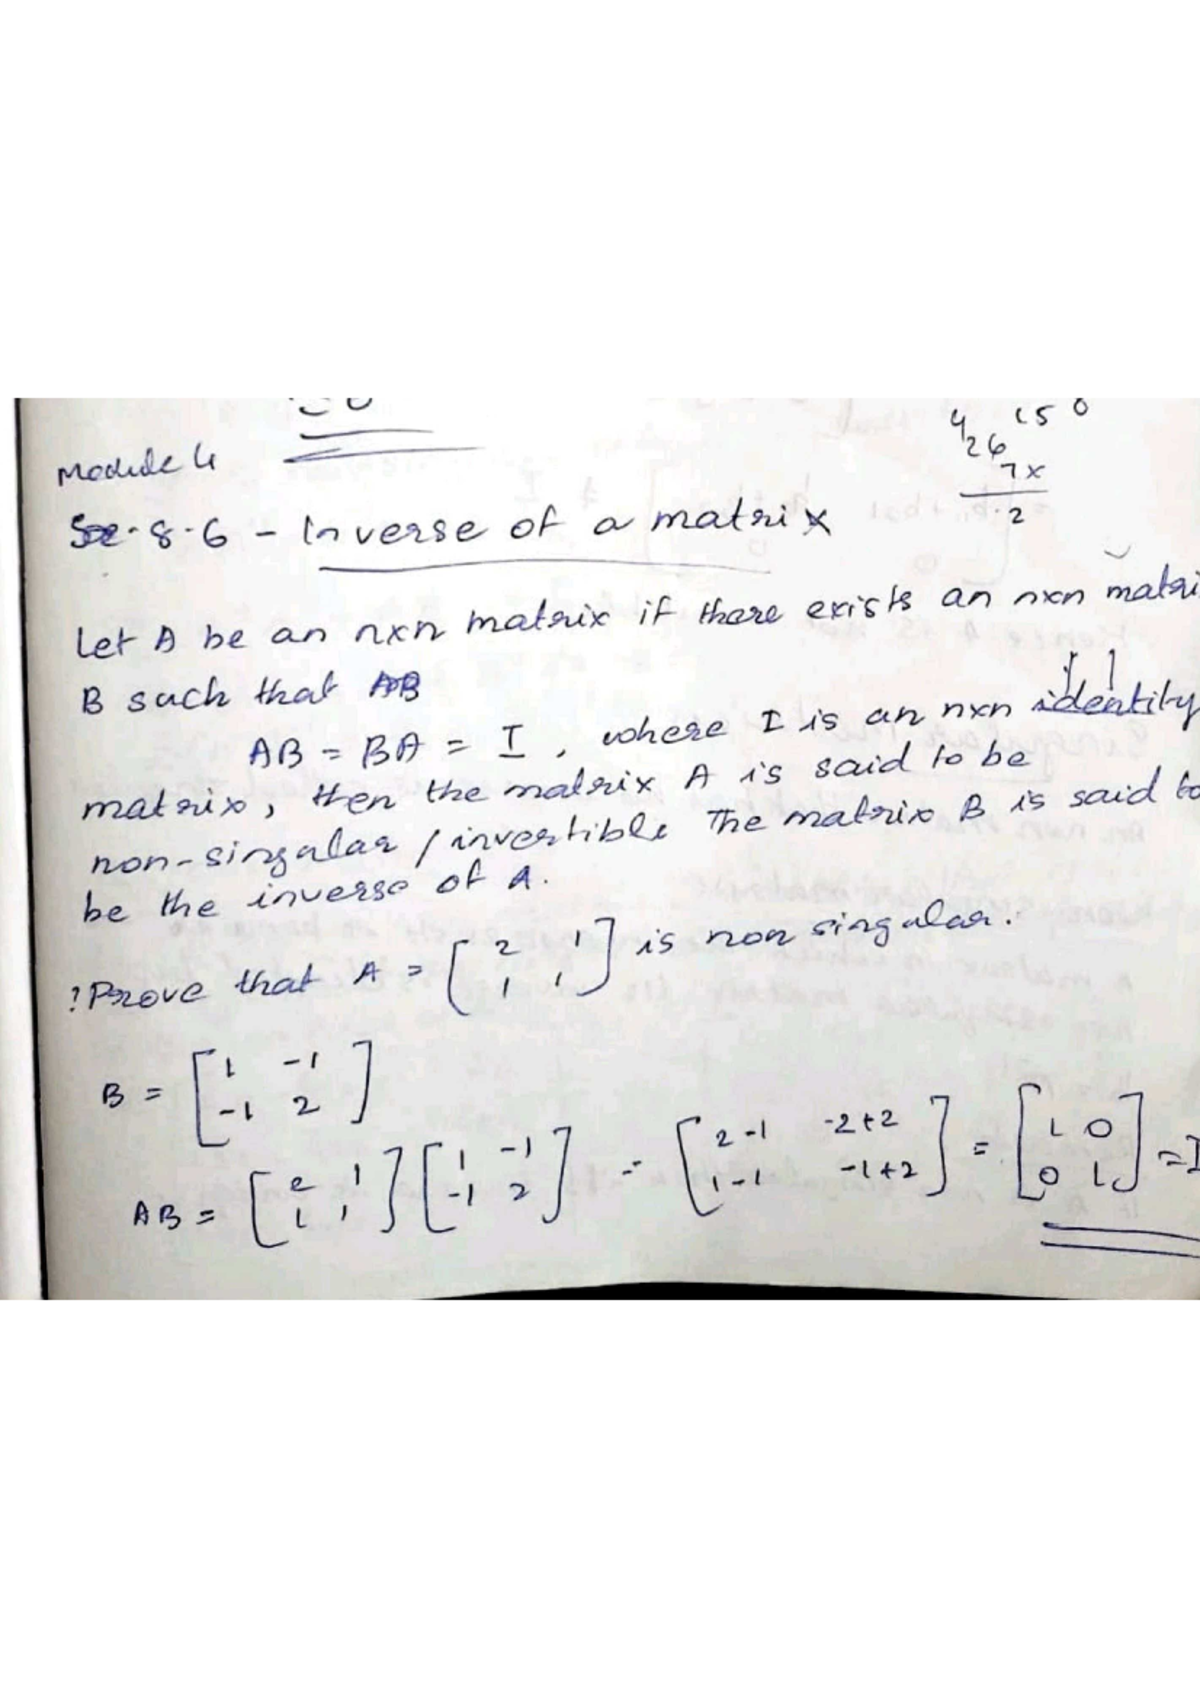 Module 4
4 15 0
26
7x
.2
Sec. 8.6 - Inverse of a matrix
Let A be an nxn matrix if there exists an nxn matri
B such that AB
AB = BA = I, where I is an nxn identity
matrix, then the matrix A is said to be
non-singular / invertible The matrix B is said to
be the inverse of A.
? Prove that A = [2 1; 1 1] is non singular.
B = [1 -1; -1 2]
AB = [2 1; 1 1] [1 -1; -1 2] = [2-1 -2+2; 1-1 -1+2] = [1 0; 0 1] = I